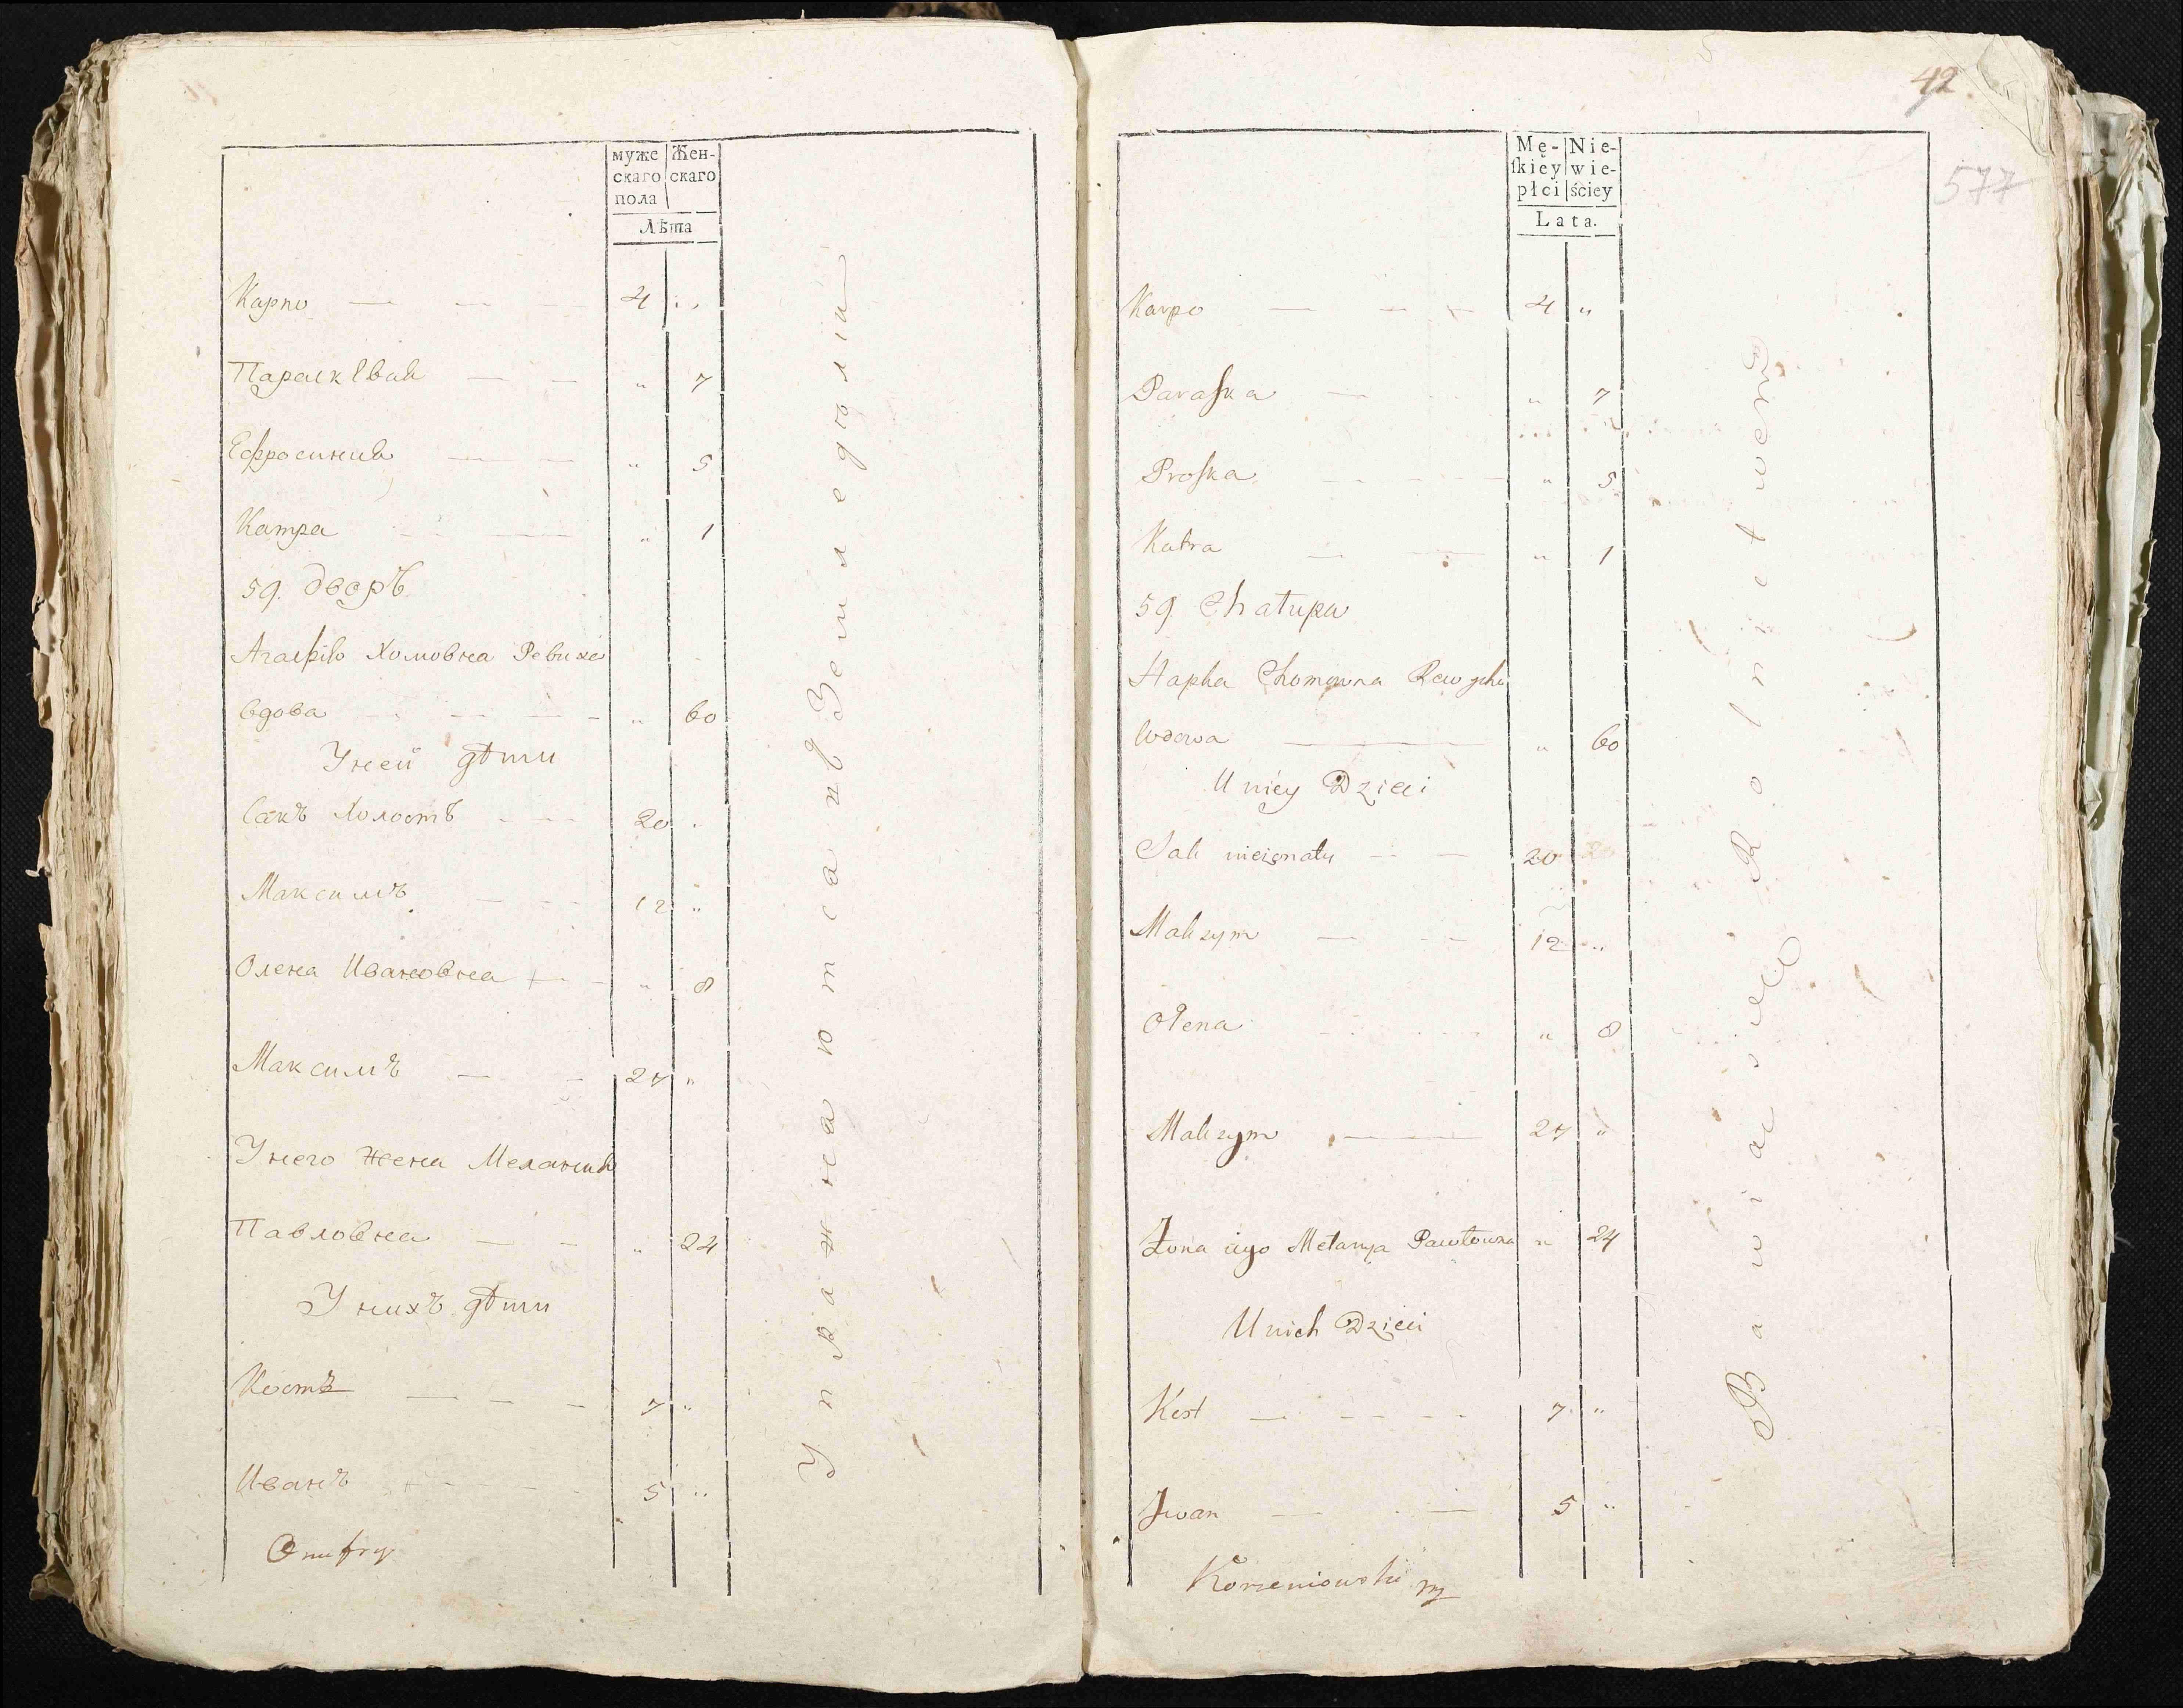 муже
скаго
пола
Жен-
скаго
Лѣта
Карпо 4 "
Параскевия " 7
Ефросиния " 5
Катра " 1
59. дворъ
Агафія Хомовна Ревиха
вдова " 60
У ней дѣти
Сакъ Холостъ 20
Максимъ 12 "
Олена Ивановна " 8
Максимъ 27 "
У него жена Мелания
Павловна " 24
У нихъ дѣти
Костъ 7 "
Иванъ 5 "
Onufry
Упражнаютса въ Земледеліи
42
577
Mę-
ſkiey
płci
Nie-
wie-
ściey
Lata.
Karpo 4 "
Paraſka " 7
Proſka " 5
Katra " 1
59 Chałupa
Hapka Chomowna Rewycha
Wdowa " 60
U niey Dzieci
Sak nieżonaty 20
Maksym 12 "
Ołena " 8
Maksym 27 "
Żona iego Mełanya Pawłowna " 24
U nich Dzieci
Kost 7 "
Jwan 5 "
Korzeniowski mp
Bawiąc się Rolnictwem